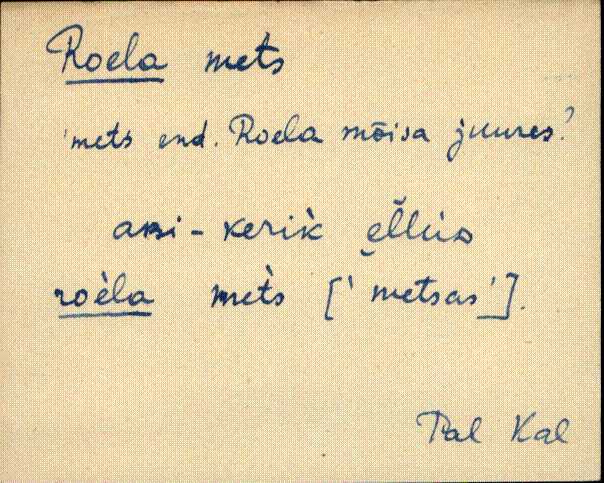 Roela mets
'mets end. Roela mõisa juures?
-kerìk
roèla mèts ['metsas'].
Pal Kal